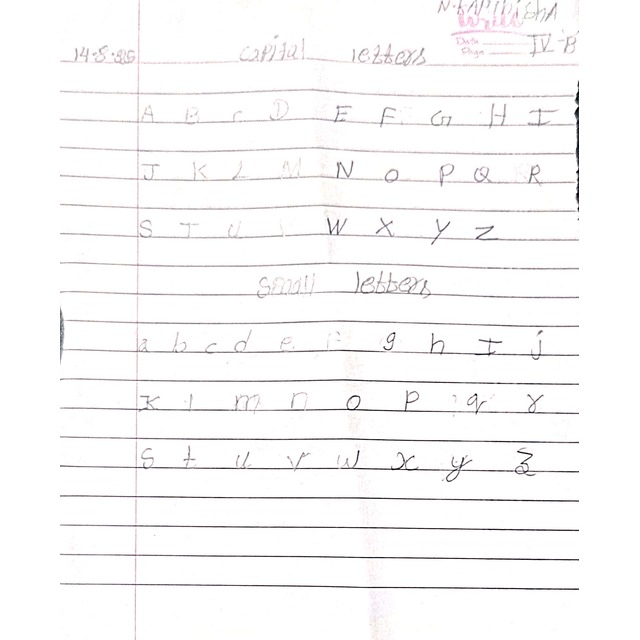 Write
Date
Sign
IV-B
14-8-25
capital letters
A B C D E F G H I
J K L M N O P Q R
S T U W X Y Z
small letters
a b c d e F g h I j
K l m n o p q r
S t u v w x y z